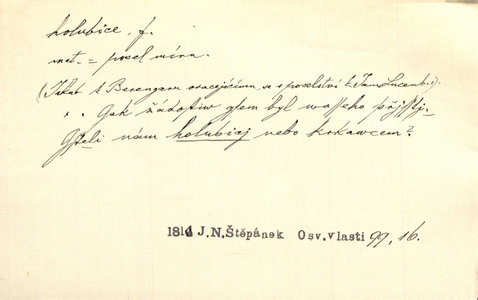 holubice, f.
met. = posel míru.
(Jakub k Berengaru vracejícímu se s poselství k Janu Lucemb.).
" " Gak žádostiw gsem byl wasseho přjsstj,
Gsteli nám holubicj nebo krkawcem?
1814 J.N.Štěpánek Osv.vlasti 99, 16.